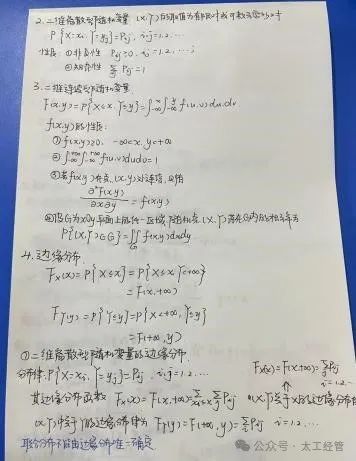 2. 二维离散型随机变量 (X,Y)的取值为有限对或可数无穷多对
P{X=xi, Y=yj}=Pij, i,j=1,2,…
性质: ①非负性 Pij≥0, i,j=1,2,…
②规范性 ∑Pij=1
3. 二维连续型随机变量
F(x,y)=P{X≤x,Y≤y}=∫-∞^x∫-∞^y f(u,v)du.dv
f(x,y)的性质:
① f(x,y)≥0, -∞<x,y<+∞
② ∫-∞^+∞∫-∞^+∞ f(u,v)dudv=1
③若f(x,y)在点(x,y)处连续,则有
∂²F(x,y)/∂x∂y = f(x,y)
④设G为xOy平面上的任一区域,随机点(X,Y)落在G内的概率为
P{(X,Y)∈G}=∬G f(x,y)dxdy
4. 边缘分布.
FX(x)=P{X≤x}=P{X≤x,Y<+∞}
=F(x,+∞)
FY(y)=P{Y≤y}=P{X<+∞,Y≤y}
=F(+∞,y)
①二维离散型随机变量的边缘分布.
分布律:P{X=xi,Y=yj}=Pij, i,j=1,2,…
FX(x)=F(x,+∞)=∑Pij
i=1,2,…
其边缘分布函数 FX(x)=F(x,+∞)=∑∑Pij
(X,Y)关于X的边缘分布
(X,Y)关于Y的边缘分布律为 FY(y)=F(+∞,y)=∑Pij i=1,2,…
联合分布不能由边缘分布唯一确定
公众号·太工经管